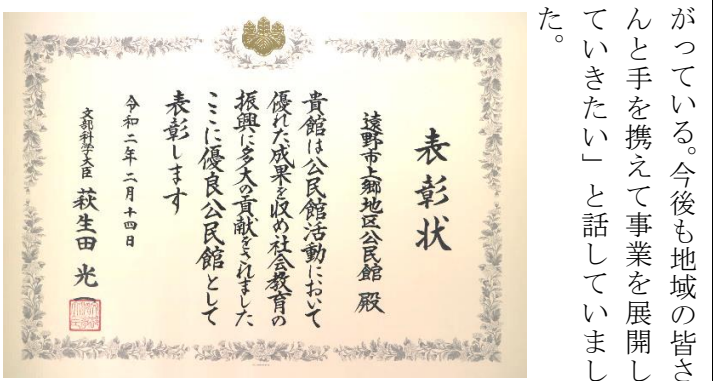 がっている。今後も地域の皆さ
んと手を携えて事業を展開し
ていきたい」と話していまし
た。
表彰状
遠野市上郷地区公民館 殿
貴館は公民館活動において
優れた成果を収め社会教育の
振興に多大の貢献をされました
ここに優良公民館として
表彰します
令和二年二月十四日
文部科学大臣 萩生田 光